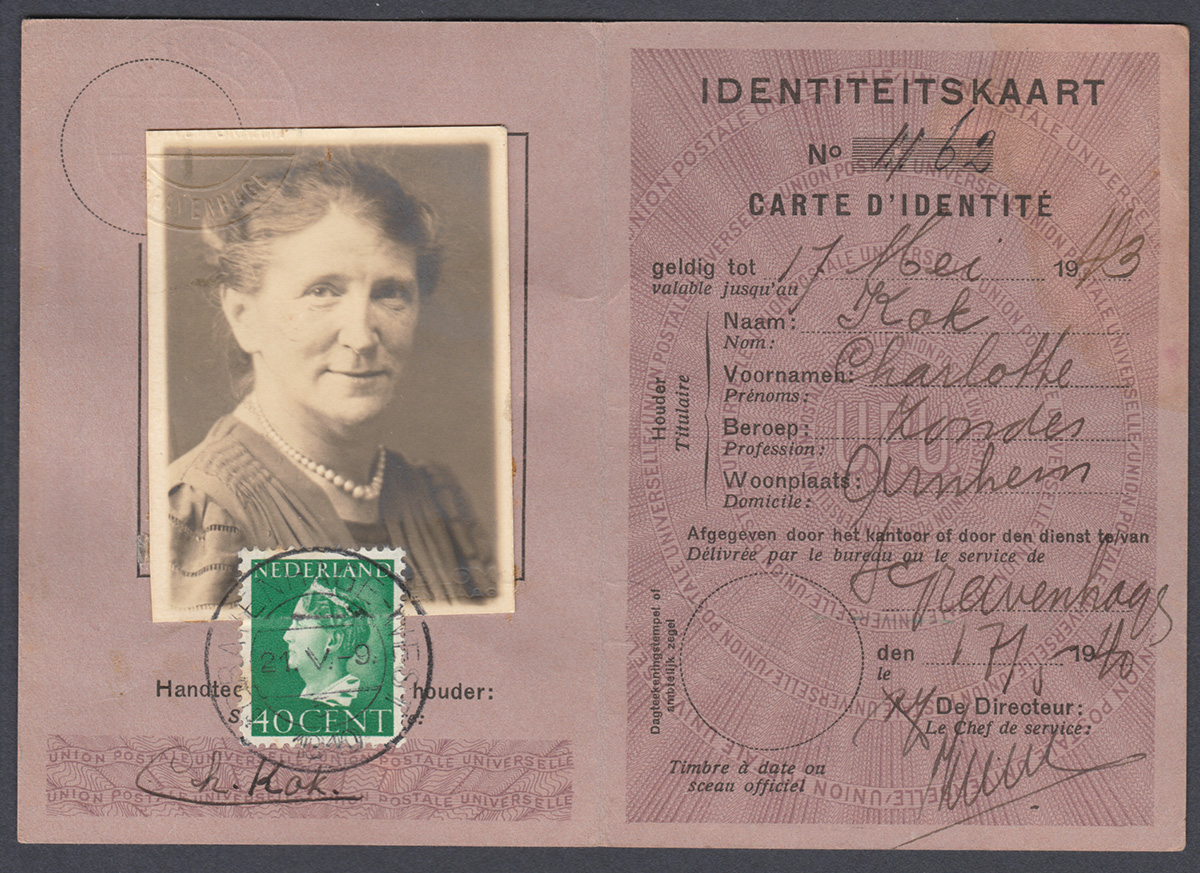 NEDERLAND
40 CENT
Handtec houder:
UNION POSTALE UNIVERSELLE
Ch. Kok.
UNION POSTALE UNIVERSELLE
IDENTITEITSKAART
No 1162
CARTE D'IDENTITÉ
geldig tot 17 Mei 1943
valable jusqu'au
Houder
Titulaire
Naam: Kok
Nom:
Voornamen: Charlotte
Prénoms:
Beroep: zonder
Profession:
Woonplaats: Arnhem
Domicile:
Afgegeven door het kantoor of door den dienst te/van
Délivrée par le bureau ou le service de
's Gravenhage
den 17/5 1940
le
De Directeur:
Le Chef de service:
Dagteekeningstempel of
ambtelijk zegel
Timbre à date ou
sceau officiel
UNION POSTALE UNIVERSELLE
UPU